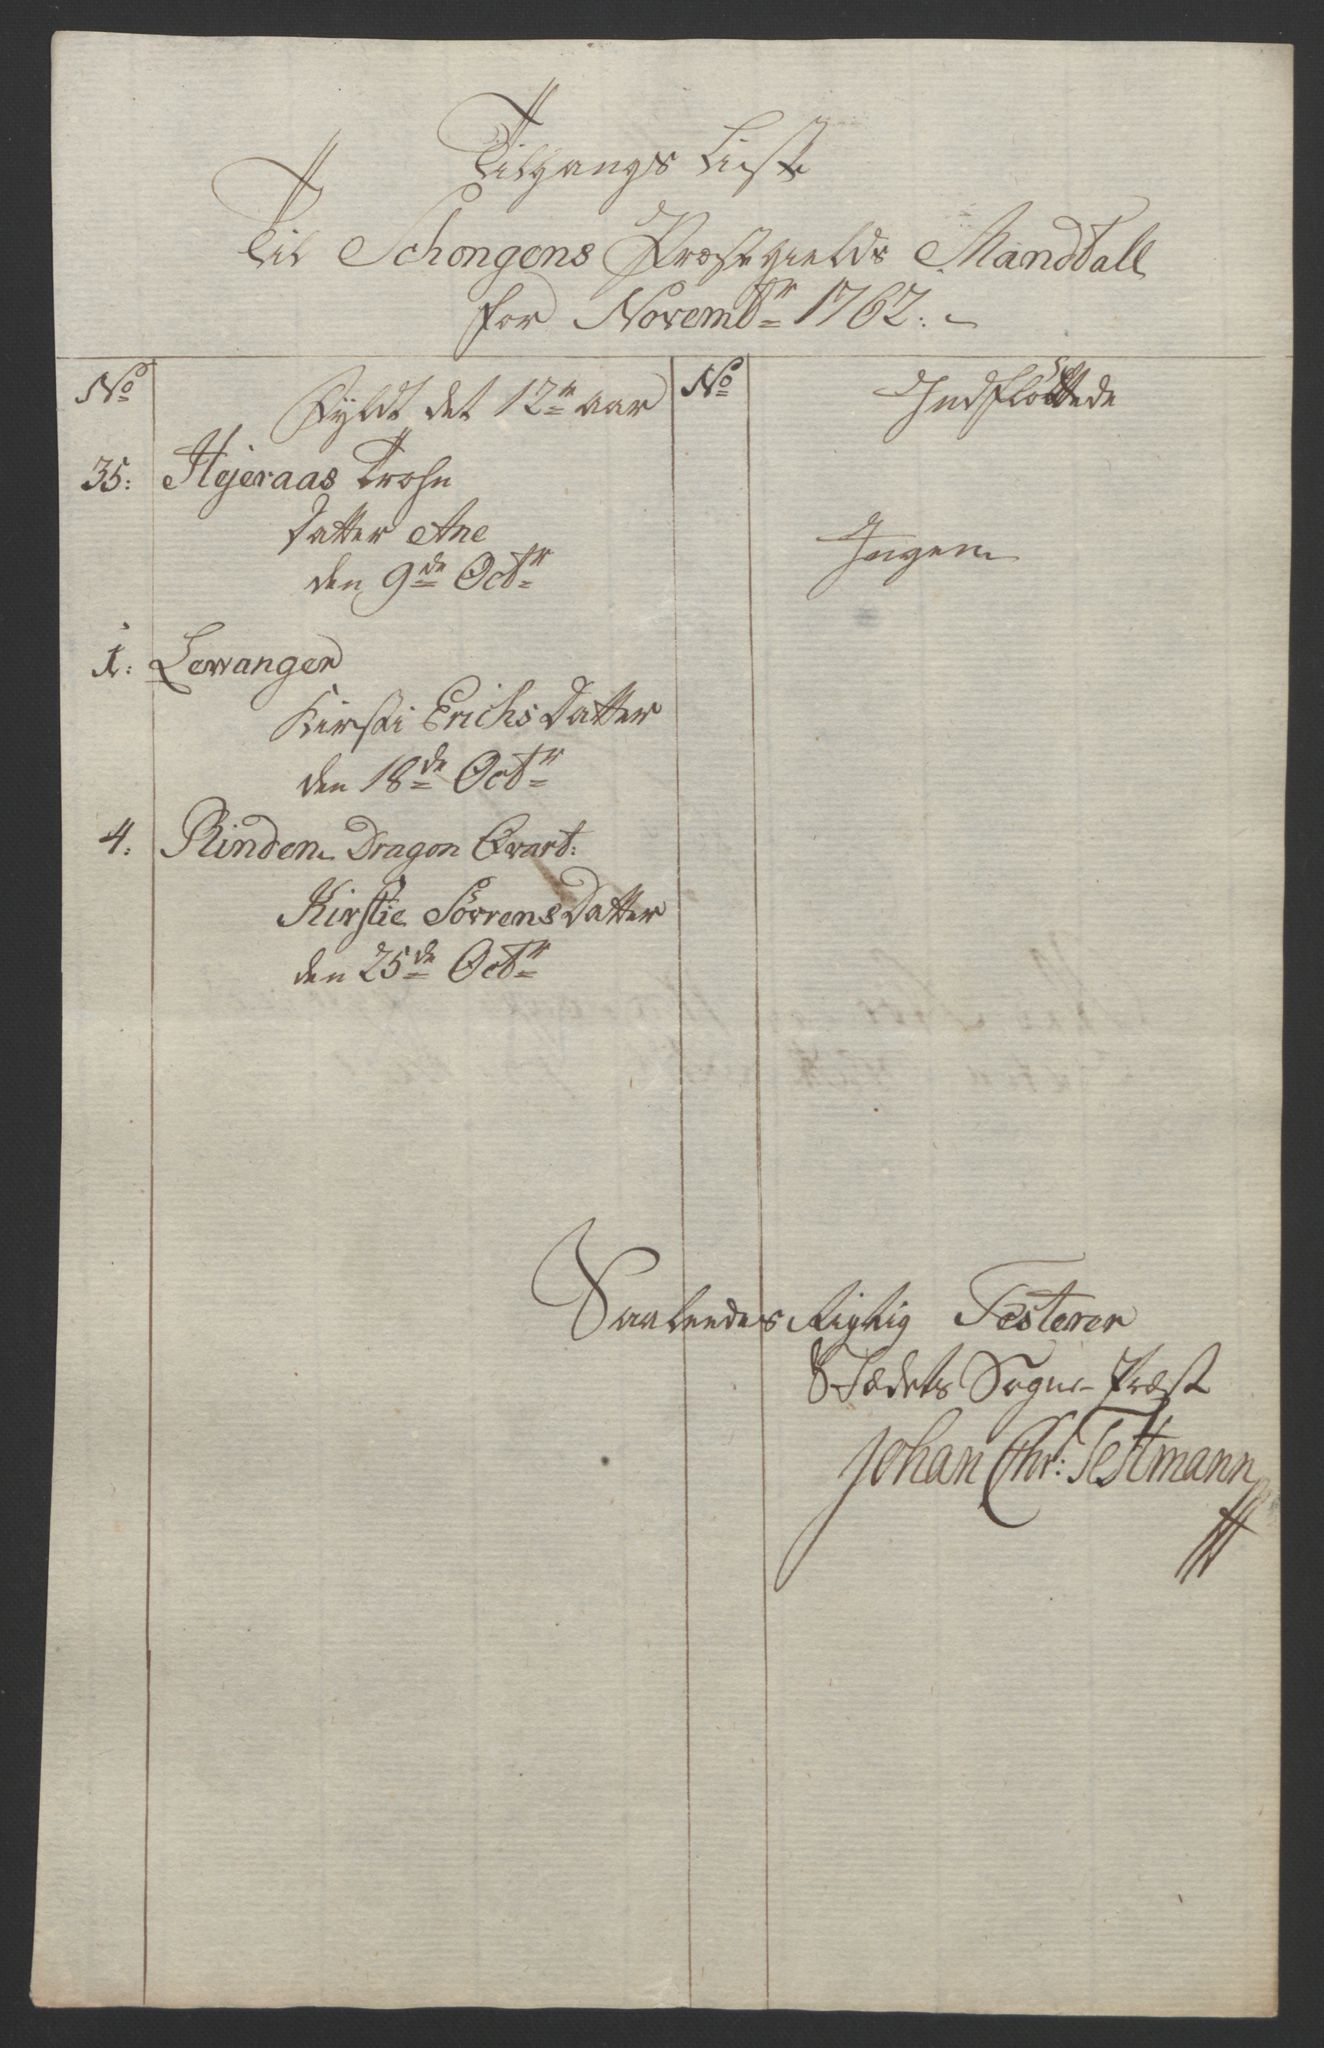 Tilgangs Liste
Til Schongens Præstegields Mandtall
for Novembr 1762.
No Fyldt det 12te aar No Indfløttede
35: Hejeraas Trohn
Datter Ane
den 9de Octr
Ingen
1: Levanger
Kirsti Erichs Datter
den 18de Octr
4. Rinden Dragon Qvart:
Kirstie Sörrens Datter
den 25de Octr
Saaleedes Rigtig Testerer
Stædets Sogne-Præst
Johan Chr: Testmann